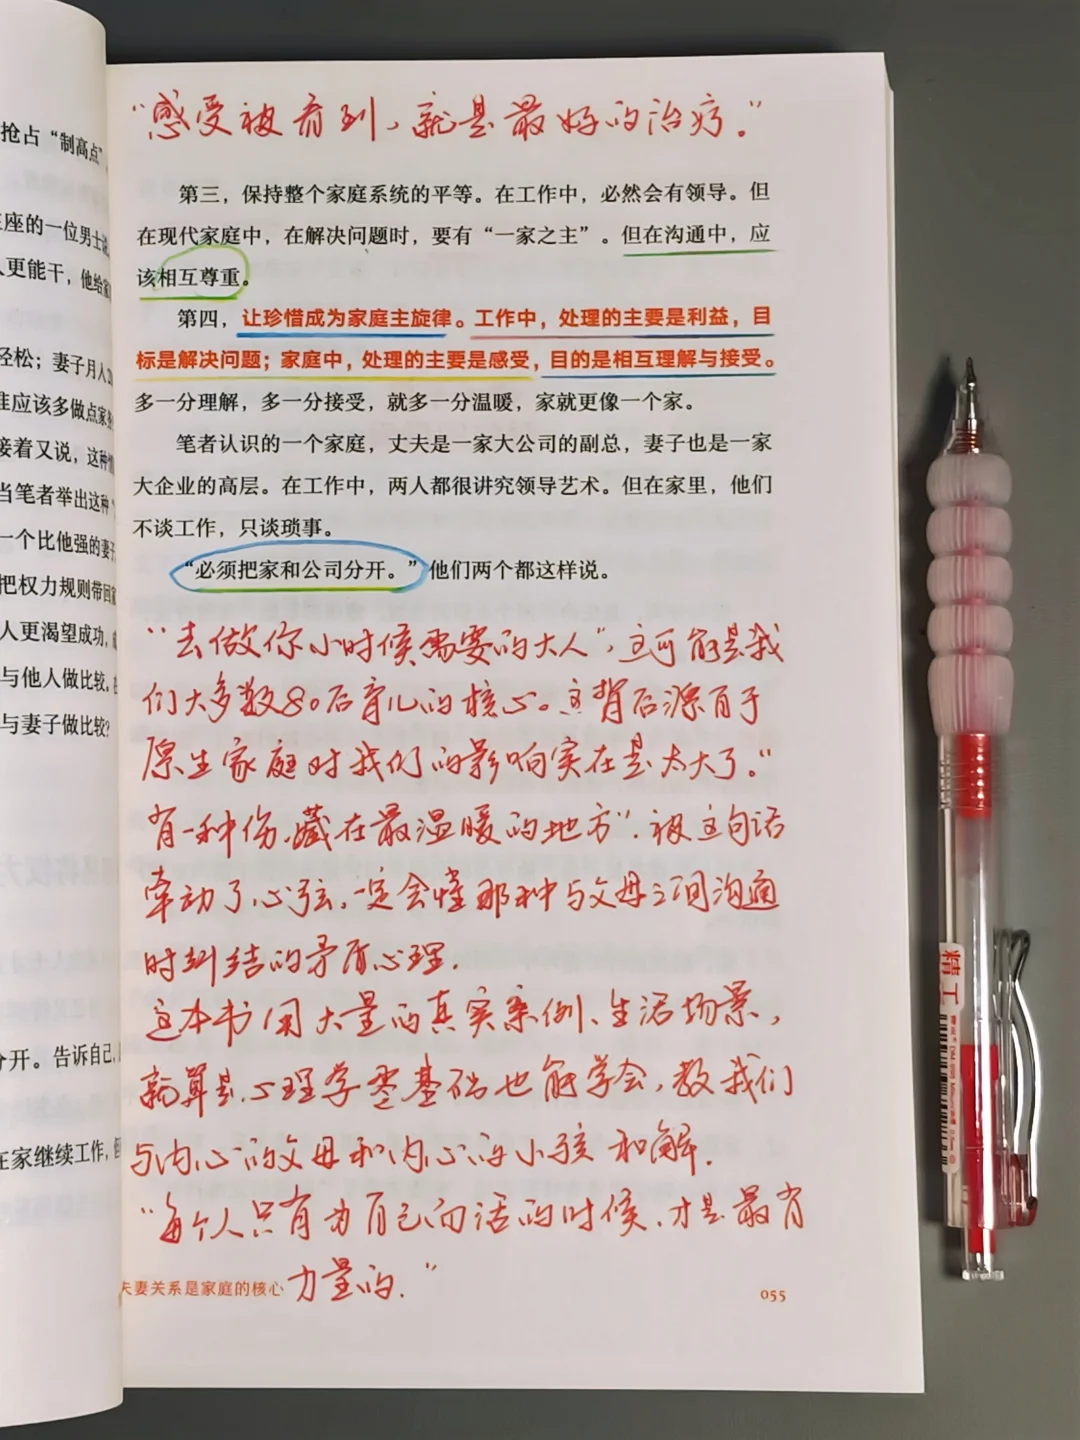 抢占“制高点”
座的一位男士说
人更能干，他给家
轻松；妻子月入
谁应该多做点家务
接着又说，这种
当笔者举出这种
一个比他强的妻子
把权力规则带回家
人更渴望成功，
与他人做比较。
与妻子做比较？
分开。告诉自己，
在家继续工作，
“感受被看到，就是最好的治疗。”
第三，保持整个家庭系统的平等。在工作中，必然会有领导。但
在现代家庭中，在解决问题时，要有“一家之主”。但在沟通中，应
该相互尊重。
第四，让珍惜成为家庭主旋律。工作中，处理的主要是利益，目
标是解决问题；家庭中，处理的主要是感受，目的是相互理解与接受。
多一分理解，多一分接受，就多一分温暖，家就更像一个家。
笔者认识的一个家庭，丈夫是一家大公司的副总，妻子也是一家
大企业的高层。在工作中，两人都很讲究领导艺术。但在家里，他们
不谈工作，只谈琐事。
“必须把家和公司分开。”他们两个都这样说。
“去做你小时候需要的大人”，这可能是我
们大多数80后育儿的核心。这背后源自于
原生家庭对我们的影响实在是太大了。“
有一种伤，藏在最温暖的地方”，被这句话
牵动了心弦，一定会懂那种与父母之间沟通
时纠结的矛盾心理．
这本书用大量的真实案例、生活场景，
就算是心理学零基础也能学会，教我们
与内心的父母和内心的小孩和解．
“每个人只有为自己而活的时候，才是最有
力量的．”
夫妻关系是家庭的核心
055
精工